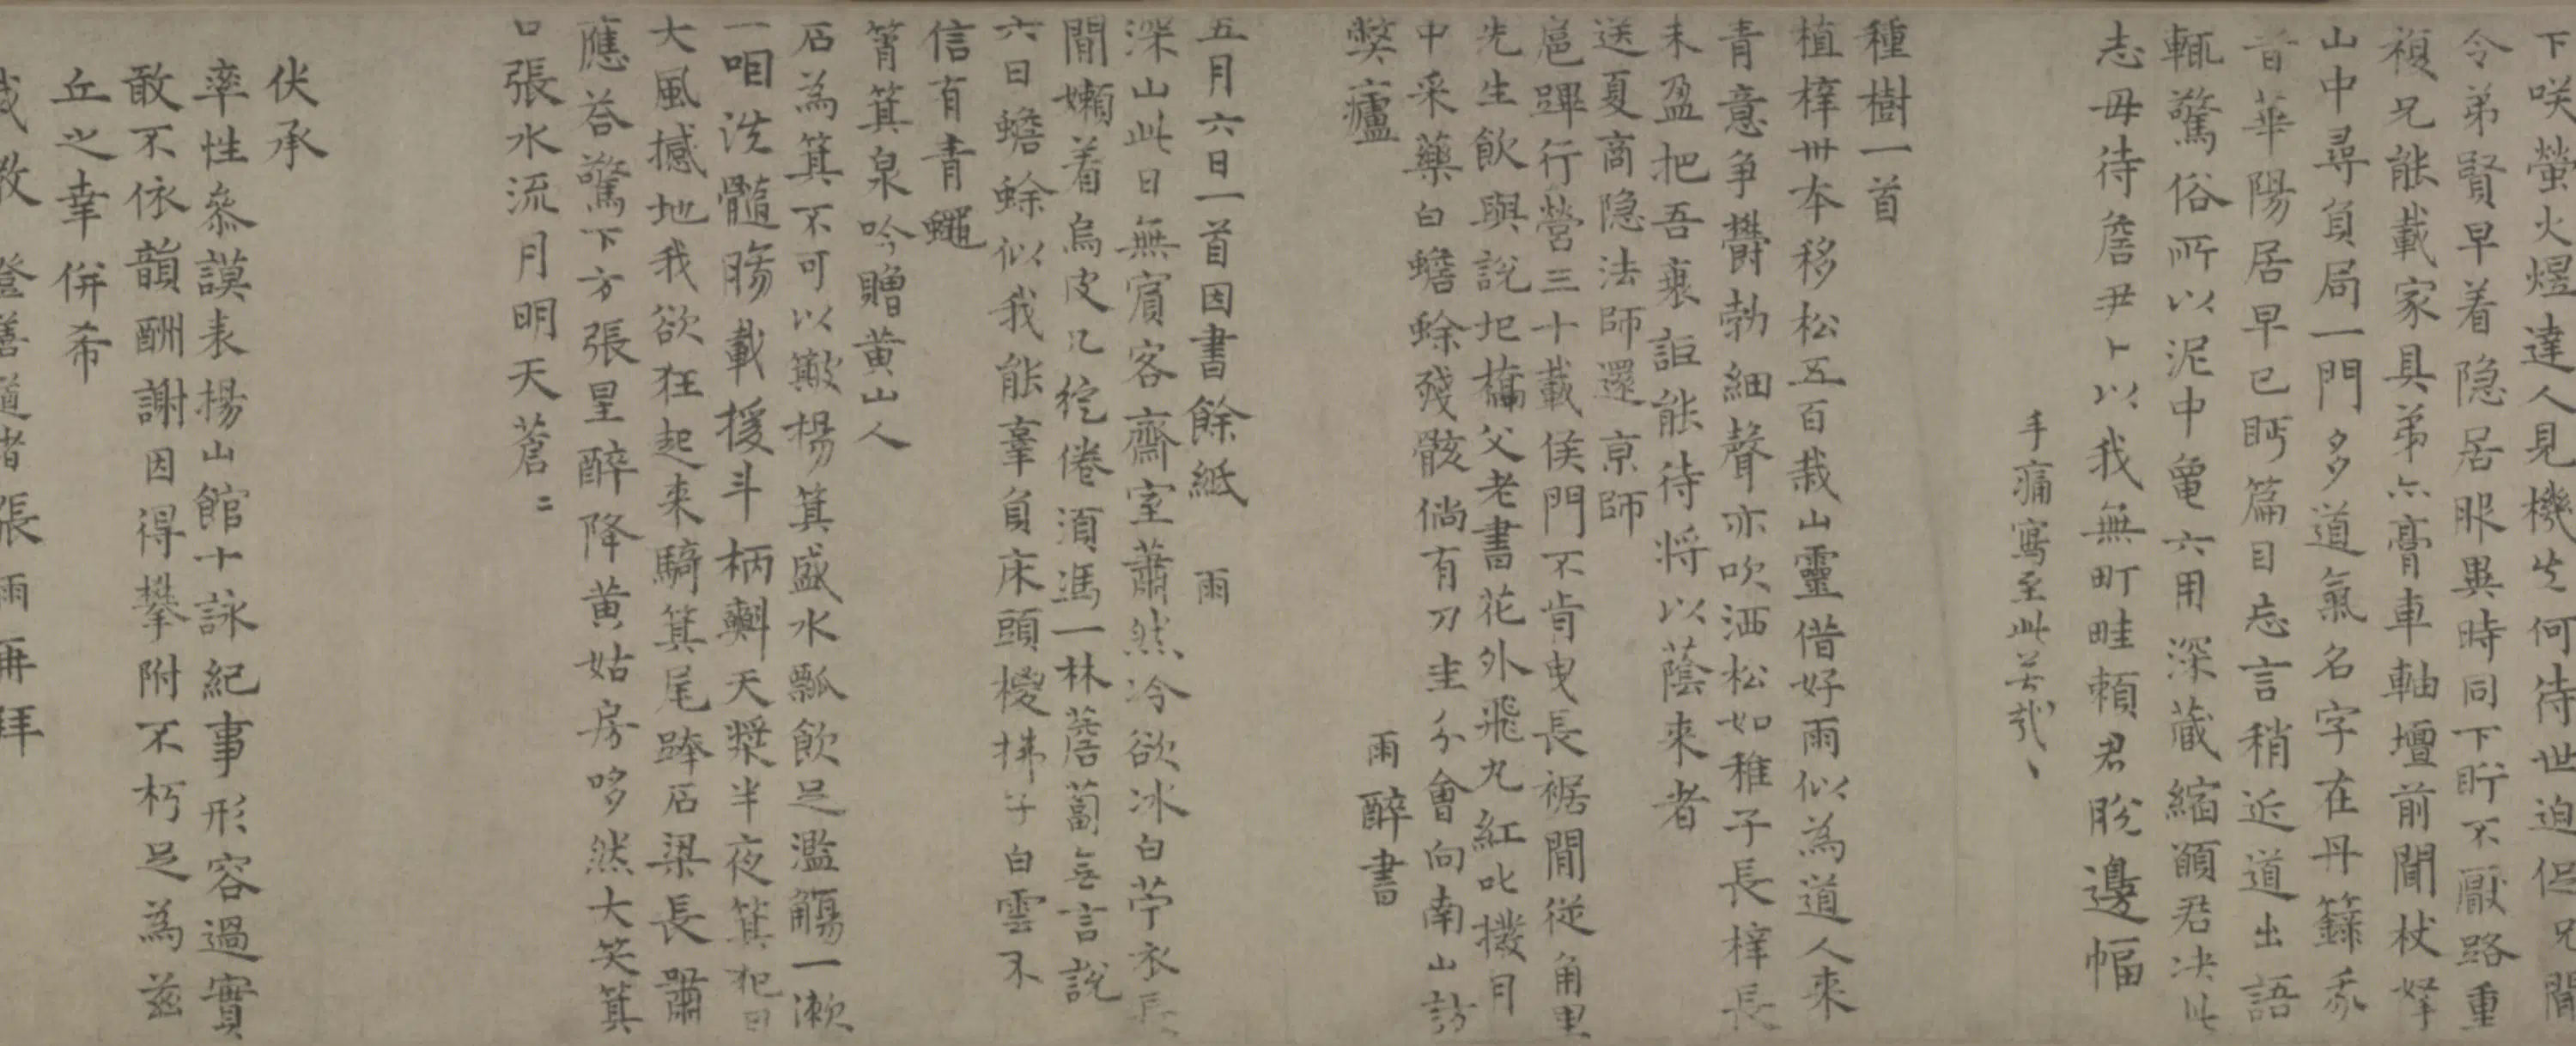 下咲螢火煜達人見機生何待世迫促兄聞
令弟賢早着隐居服異時同下盻不厭路重
複兄能載家具弟亦膏車軸壇前聞杖拏
山中尋負局一門多道氣名字在丹籙
昔華陽居早已眄篇目忘言稍近道出語
輒驚俗所以泥中龜六用深藏縮顧君决此
志毋待詹尹卜以我無町畦賴君脫邊幅
手痛寫至此苦哉丶
種樹一首
植梓卅本移松五百栽山靈借好雨似為道人來
青意争欝勃細聲亦吹洒松如稚子長梓長
未盈把吾衰詎能待将以蔭來者
送夏商隐法師還京師
扈蹕行營三十載侯門不肯曳長裾間從甪里
先生飲與說圯橋父老書花外飛丸紅叱撥月
中采藥白蟾蜍殘骸倘有刀圭分會向南山訪
弊廬
雨醉書
五月六日一首因書餘紙 雨
深山此日無賓客齋室蕭然冷欲冰白苧衣長
間嬾着烏皮几穩倦須馮一林薝蔔無言說
六日蟾蜍似我能辜負床頭椶拂子白雲不
信有青蠅
箐箕泉吟贈黄山人
石為箕不可以簸揚箕盛水瓢飲足濫觴一漱
一咽洗髓腸載援斗柄㪺天漿半夜箕犯月
大風撼地我欲狂起来騎箕尾踤石梁長嘯
應荅驚下方張星醉降黄姑房哆然大笑箕
口張水流月明天蒼〻
伏承
率性叅謨表揚山館十詠紀事形容過實
敢不依韻酬謝因得攀附不朽足為兹
丘之幸併希
教 登善道者張雨再拜